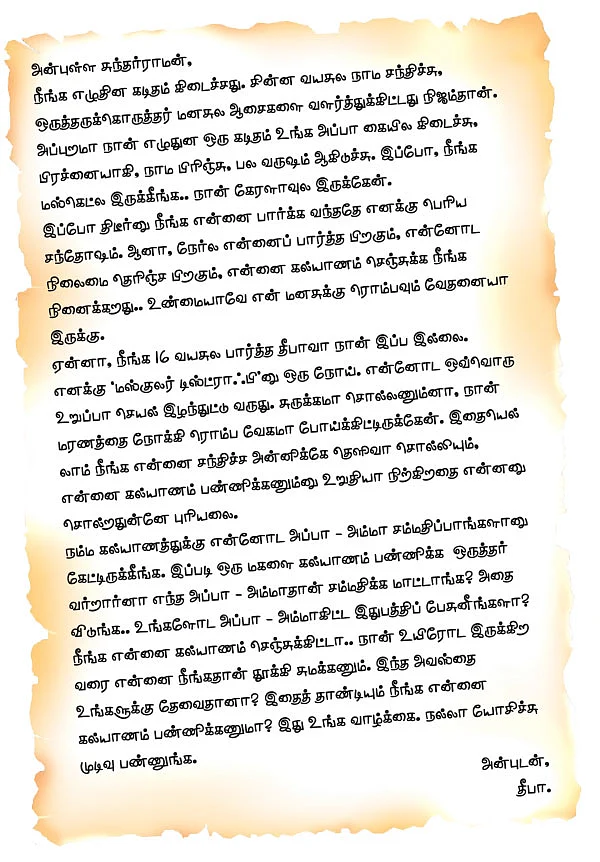 அன்புள்ள சுந்தர்ராமன்,
நீங்க எழுதின கடிதம் கிடைச்சது. சின்ன வயசுல நாம சந்திச்சு,
ஒருத்தருக்கொருத்தர் மனசுல ஆசைகளை வளர்த்துக்கிட்டது நிஜம்தான்.
அப்புறமா நான் எழுதுன ஒரு கடிதம் உங்க அப்பா கையில கிடைச்சு,
பிரச்னையாகி, நாம பிரிஞ்சு, பல வருஷம் ஆகிடுச்சு. இப்போ, நீங்க
மஸ்கெட்ல இருக்கீங்க.. நான் கேரளாவுல இருக்கேன்.
இப்போ திடீர்னு நீங்க என்னை பார்க்க வந்ததே எனக்கு பெரிய
சந்தோஷம். ஆனா, நேர்ல என்னைப் பார்த்த பிறகும், என்னோட
நிலைமை தெரிஞ்ச பிறகும், என்னை கல்யாணம் செஞ்சுக்க நீங்க
நினைக்கறது.. உண்மையாவே என் மனசுக்கு ரொம்பவும் வேதனையா
இருக்கு.
ஏன்னா, நீங்க 16 வயசுல பார்த்த தீபாவா நான் இப்ப இல்லை.
எனக்கு 'மஸ்குலர் டிஸ்ட்ராஃபி'னு ஒரு நோய். என்னோட ஒவ்வொரு
உறுப்பா செயல் இழந்துட்டு வருது. சுருக்கமா சொல்லணும்னா, நான்
மரணத்தை நோக்கி ரொம்ப வேகமா போய்க்கிட்டிருக்கேன். இதையெல்
லாம் நீங்க என்னை சந்திச்ச அன்னிக்கே தெளிவா சொல்லியும்,
என்னை கல்யாணம் பண்ணிக்கணும்னு உறுதியா நிற்கிறதை என்னனு
சொல்றதுன்னே புரியலை.
நம்ம கல்யாணத்துக்கு என்னோட அப்பா - அம்மா சம்மதிப்பாங்களானு
கேட்டிருக்கீங்க. இப்படி ஒரு மகளை கல்யாணம் பண்ணிக்க ஒருத்தர்
வர்றார்னா எந்த அப்பா - அம்மாதான் சம்மதிக்க மாட்டாங்க? அதை
விடுங்க.. உங்களோட அப்பா - அம்மாகிட்ட இதுபத்திப் பேசுனீங்களா?
நீங்க என்னை கல்யாணம் செஞ்சுக்கிட்டா.. நான் உயிரோட இருக்கிற
வரை என்னை நீங்கதான் தூக்கி சுமக்கணும். இந்த அவஸ்தை
உங்களுக்கு தேவைதானா? இதைத் தாண்டியும் நீங்க என்னை
கல்யாணம் பண்ணிக்கணுமா? இது உங்க வாழ்க்கை. நல்லா யோசிச்சு
முடிவு பண்ணுங்க.
அன்புடன்,
தீபா.